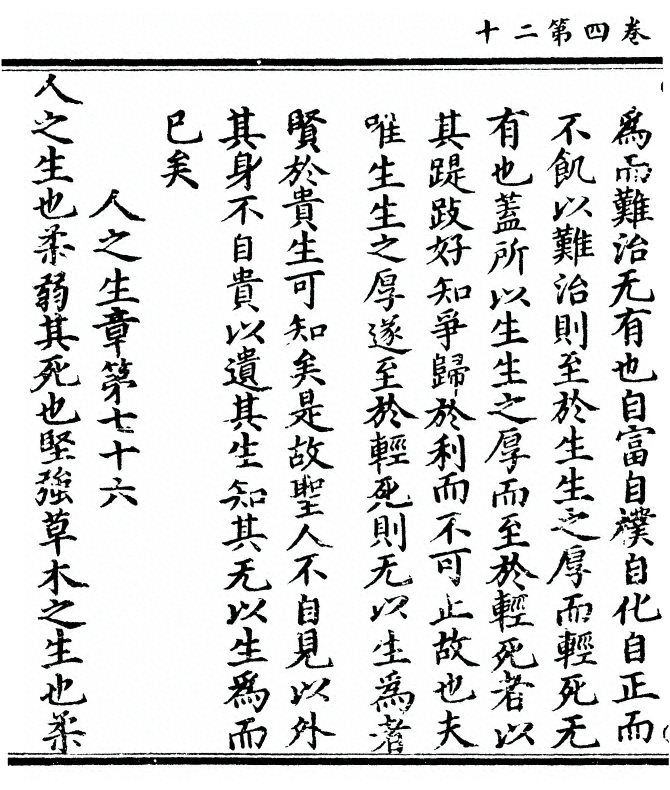 卷四第二十
爲而難治无有也自富自樸自化自正而
不飢以難治則至於生生之厚而輕死无
有也蓋所以生生之厚而至於輕死者以
其踶跂好知爭歸於利而不可止故也夫
唯生生之厚遂至於輕死則无以生爲者
賢於貴生可知矣是故聖人不自見以外
其身不自貴以遺其生知其无以生爲而
已矣
人之生章第七十六
人之生也柔弱其死也堅強草木之生也柔